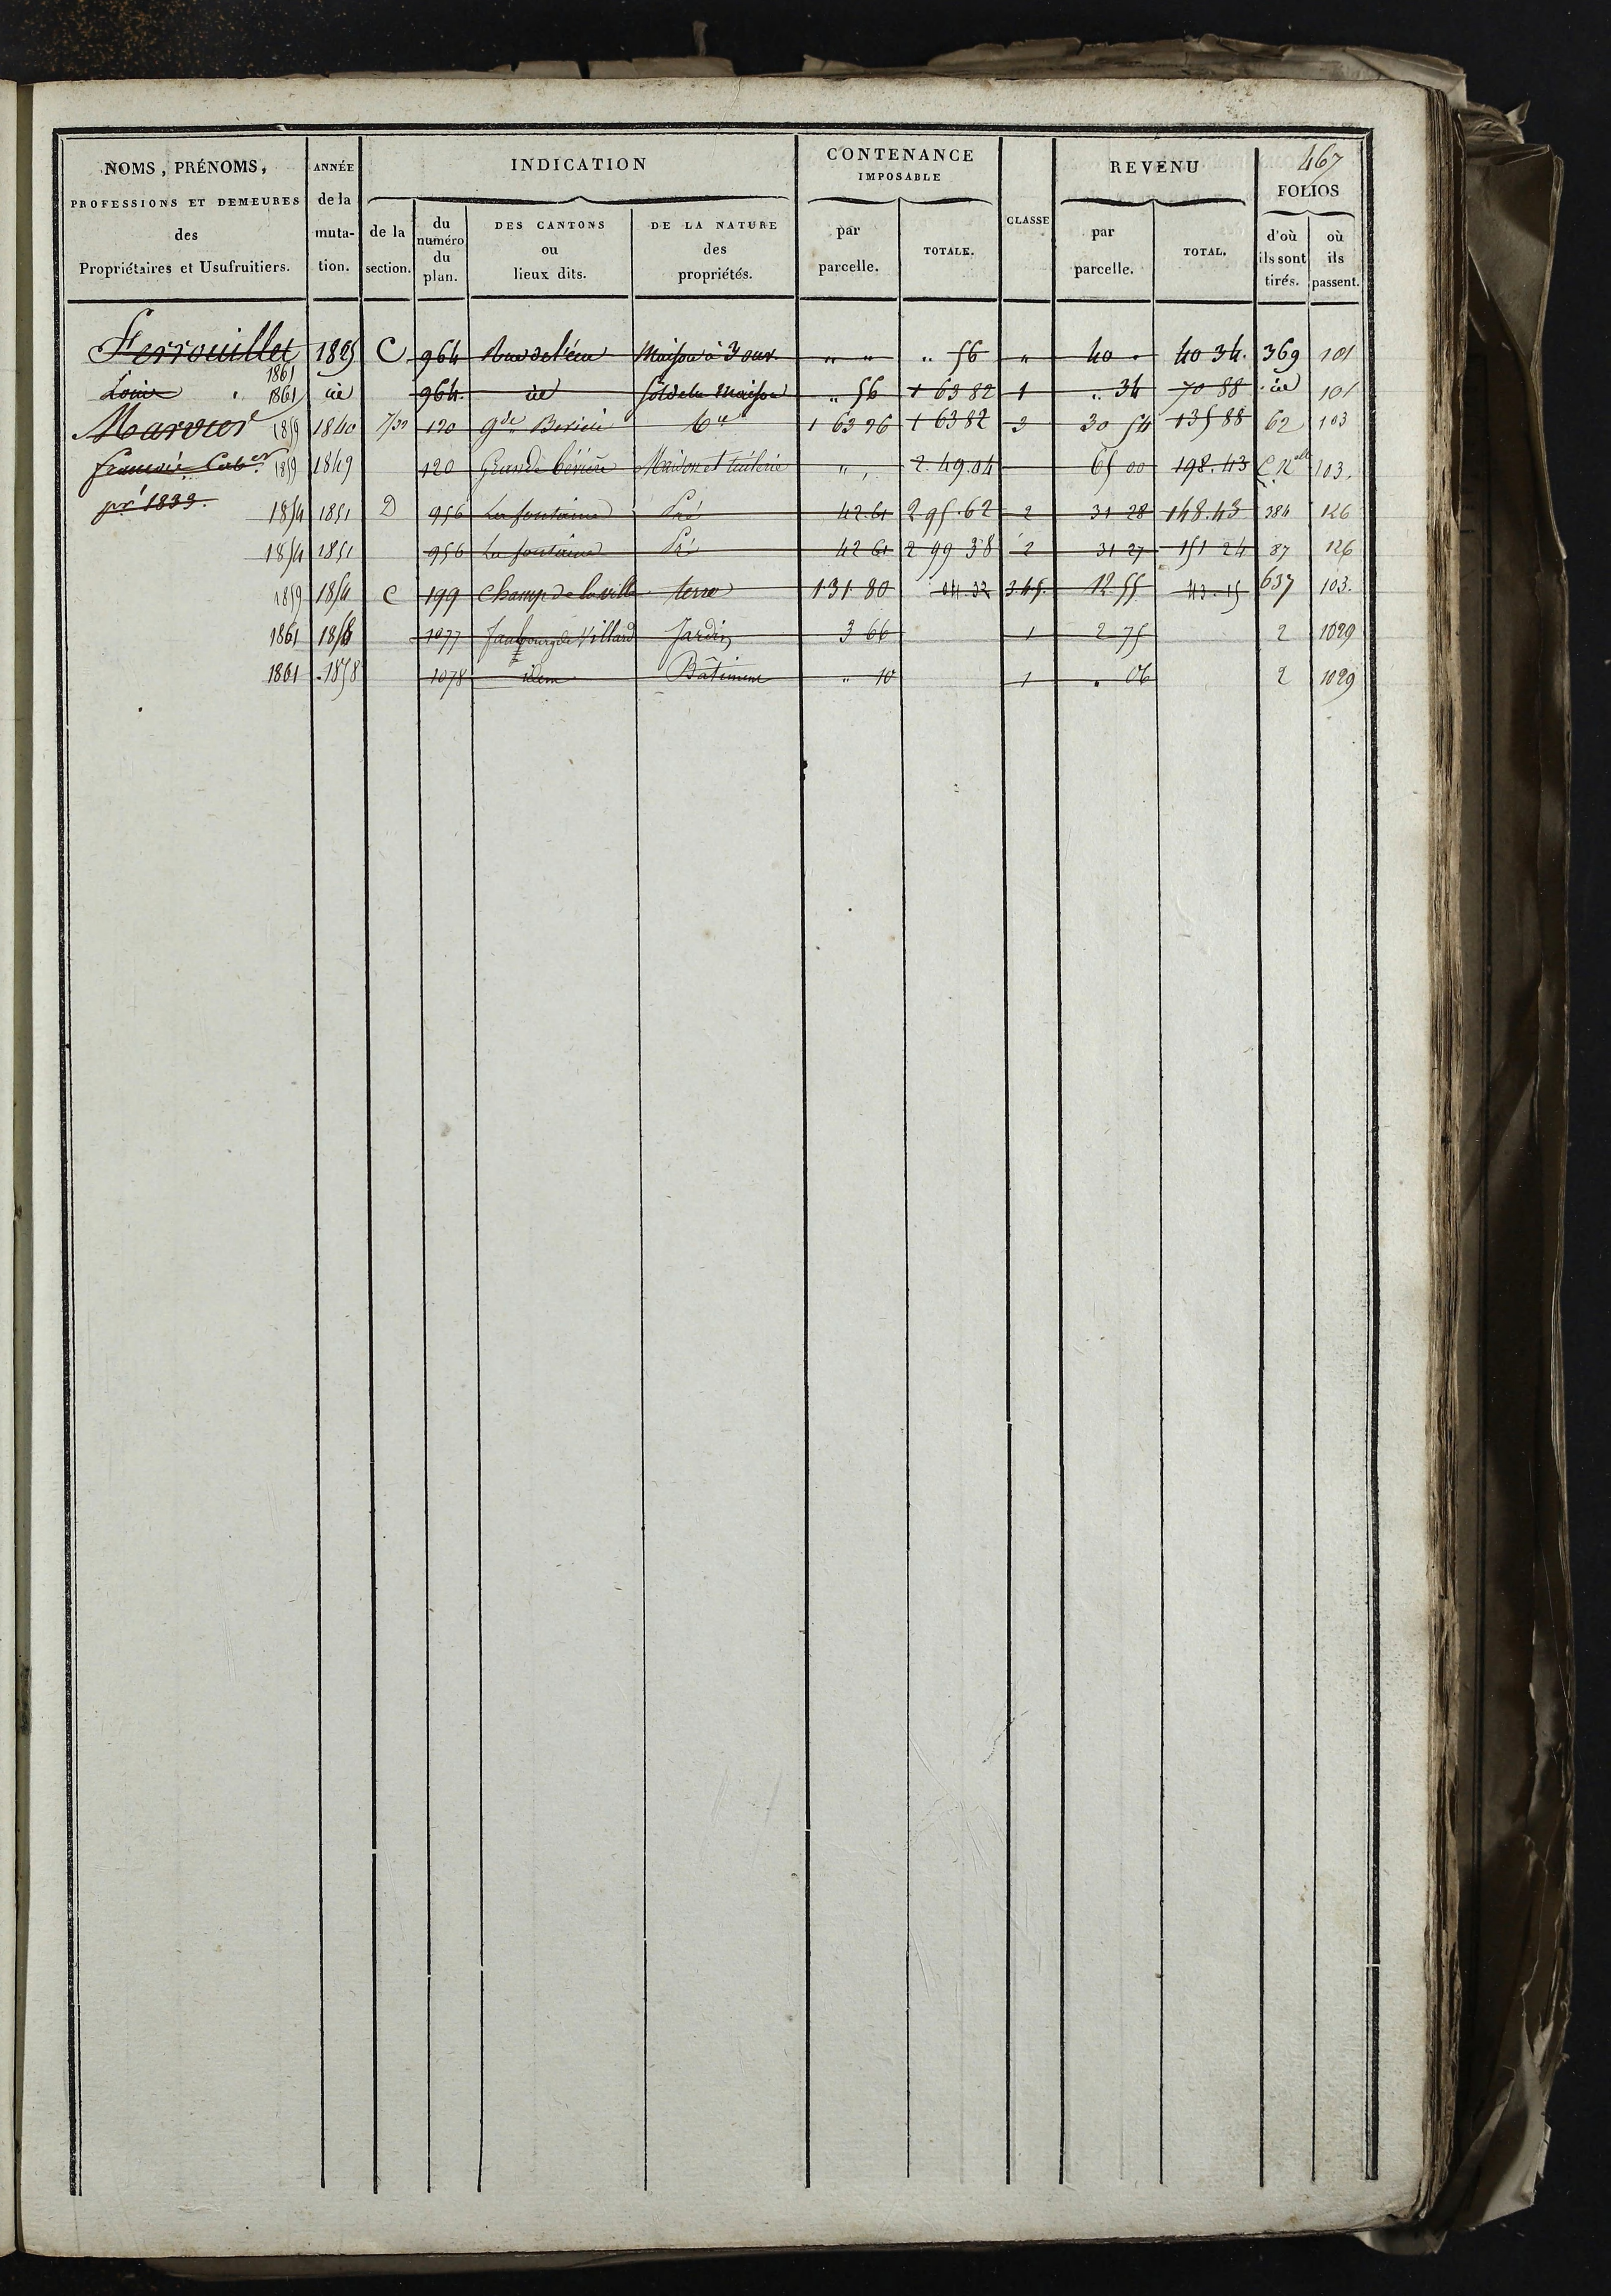 467
NOMS, PRÉNOMS, PROFESSIONS ET DEMEURES des Propriétaires et Usufruitiers.
ANNÉE de la muta-tion.
INDICATION
de la section.
du numéro du plan.
DES CANTONS ou lieux dits.
DE LA NATURE des propriétés.
CONTENANCE IMPOSABLE
par parcelle.
TOTALE.
CLASSE
REVENU
par parcelle.
TOTAL.
FOLIOS
d'où ils sont tirés.
où ils passent.
Ferrouillet 1861 1825 C 964 Rue de l'écu Maison à 3 ouv. " " " 56 " 40 " 40 34. 369 101
Louis 1861 id 964 id Sol de la Maison " 56 1 63 82 1 " 34 70 88 id 101
Marvier 1859 1840 120 gde 1 63 26 1 63 82 3 30 54 135 88 62 103
1859 1849 120 Grande Maison et 2.49.04 65 00 198.43 103.
pr 1833.
1854 1851 D 956 La fontaine Pré 42.61 2 95.62 2 31 28 148.43 384 126
1854 1851 956 La fontaine Pré 42 61 2 99 38 2 31 27 151 24 87 126
1859 1854 C 199 Champ de la ville terre 1 31 80 04 32 3.4.5. 12.55 43.15 637 103.
1861 1858 1077 Faubourg de Villard Jardin 3 66 1 2 75 2 1029
1861 1858 1078 idem Bâtiment " 10 1 . 06 2 1029